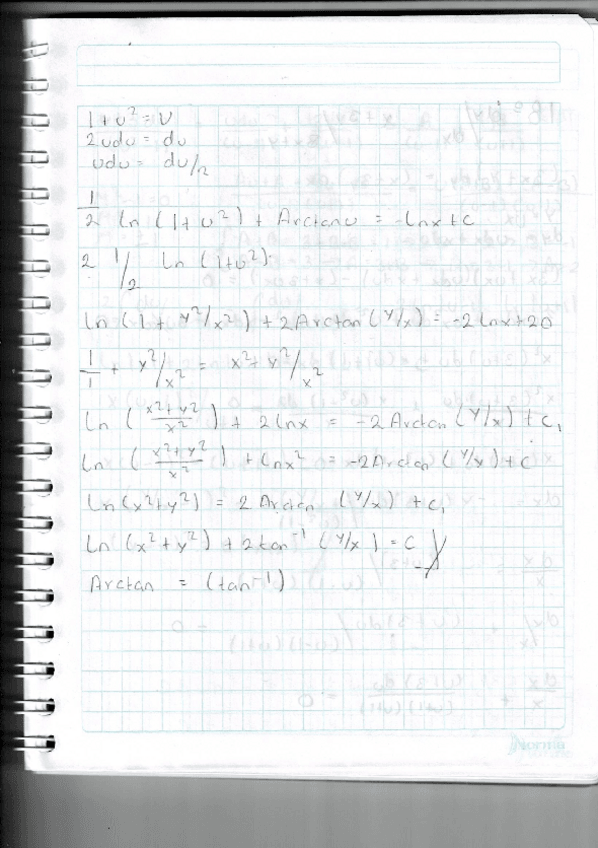 1+u² = U
2udu = du
udu = du/2
1/2 ln (1+u²) + Arctanu = -lnx+c
2 1/2 ln (1+u²)
ln (1+ y²/x²) + 2Arctan (y/x) = -2lnx+20
1/1 + y²/x² = x²+y²/x²
ln (x²+y²/x²) + 2lnx = -2Arctan (y/x) + C₁
ln (x²+y²/x²) + lnx² = -2Arctan (y/x) + C
ln (x²+y²) = 2 Arctan (y/x) + C₁
ln (x²+y²) + 2tan⁻¹ (y/x) = C
Arctan = (tan⁻¹)
Norma